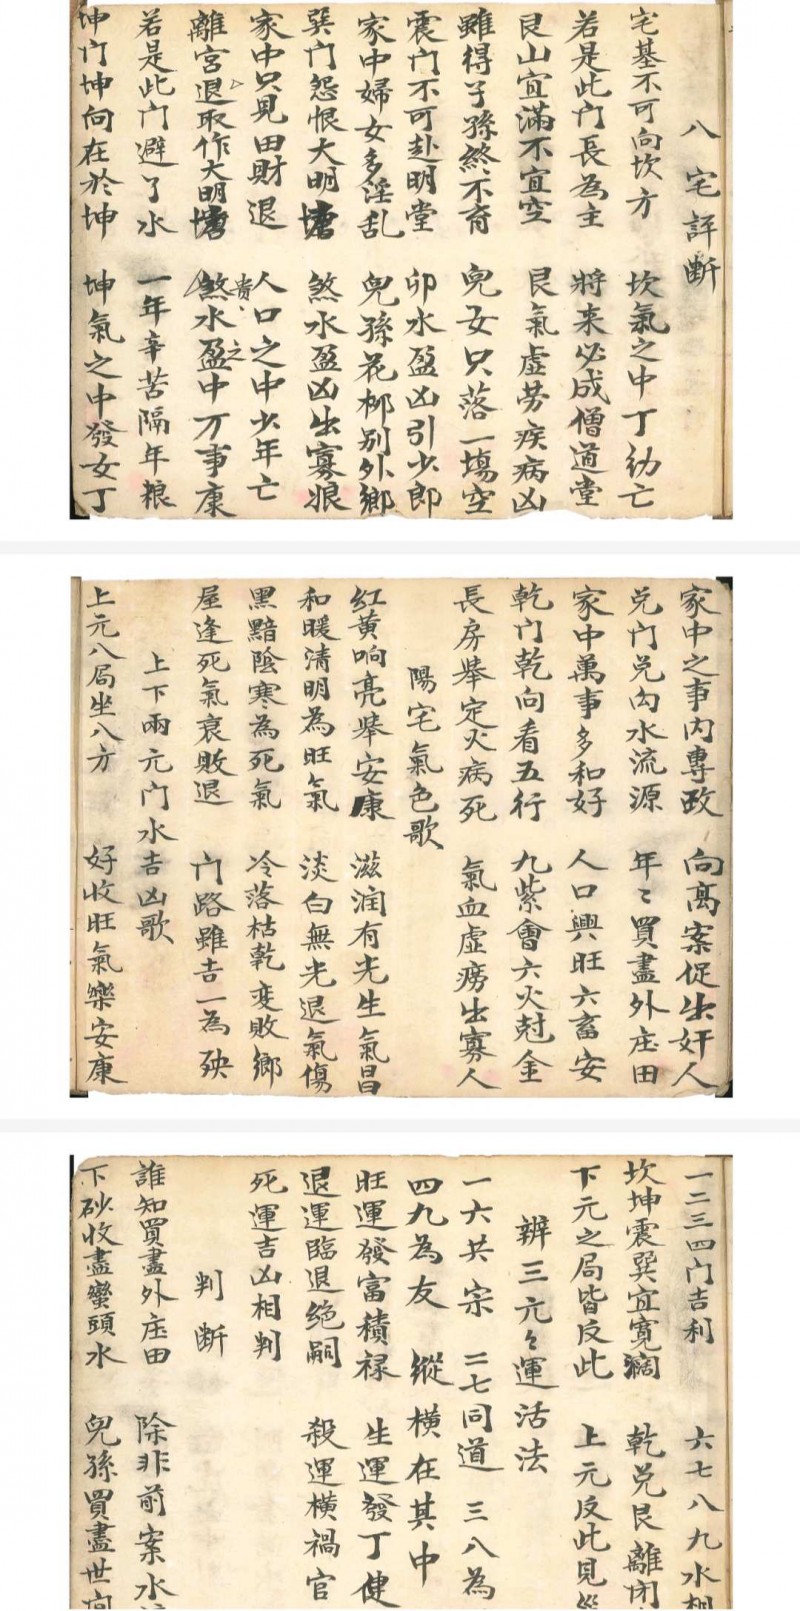 八宅評断
宅基不可向坎方 坎氣之中丁幼亡
若是此门長為主 將来必成僧道堂
艮山宜滿不宜空 艮氣虛劳疾病凶
雖得子孫煞不育 兒女只落一塲空
震门不可赴明堂 卯水盈凶引少郎
家中婦女多淫乱 兒孫花柳别外鄉
巽门怨恨大明塘 煞水盈凶出寡娘
家中只見田財退 人口之中少年亡
離宮退取作大明塘 煞水盈中万事康
貴之
若是此门避了水 一年辛苦隔年粮
坤门坤向在於坤 坤氣之中發女丁
家中之事内專政 向离案促出奸人
兑门兑向水流源 年々買盡外庄田
家中萬事多和好 人口興旺六畜安
乾门乾向看五行 九紫會六火尅金
長房犖定火病死 氣血虛癆出寡人
陽宅氣色歌
红黄响亮犖安康 滋润有光生氣昌
和暖清明為旺氣 淡白無光退氣傷
黑黯陰寒為死氣 冷落枯乾变敗鄉
屋逢死氣衰敗退 门路雖吉一為殃
上下兩元门水吉凶歌
上元八局坐八方 好收旺氣樂安康
一二三四门吉利 六七八九水相
坎坤震巽宜寛濶 乾兑艮離閉
下元之局皆反此 上元反此見
辨三元々運活法
一六共宗 二七同道 三八為
四九為友 縱橫在其中
旺運發富積禄 生運發丁健
退運臨退绝嗣 殺運橫禍官
死運吉凶相判
判断
誰知買盡外庄田 除非前案水
下砂收盡蠻頭水 兒孫買盡世间